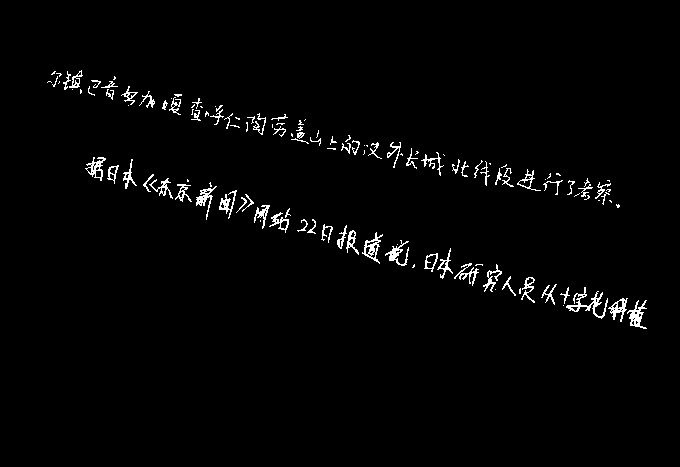 尔镇巴音努加嘎查呼仁陶劳盖山上的汉外长城北线段进行了考察。
据日本《东京新闻》网站22日报道说,日本研究人员从十字花科植